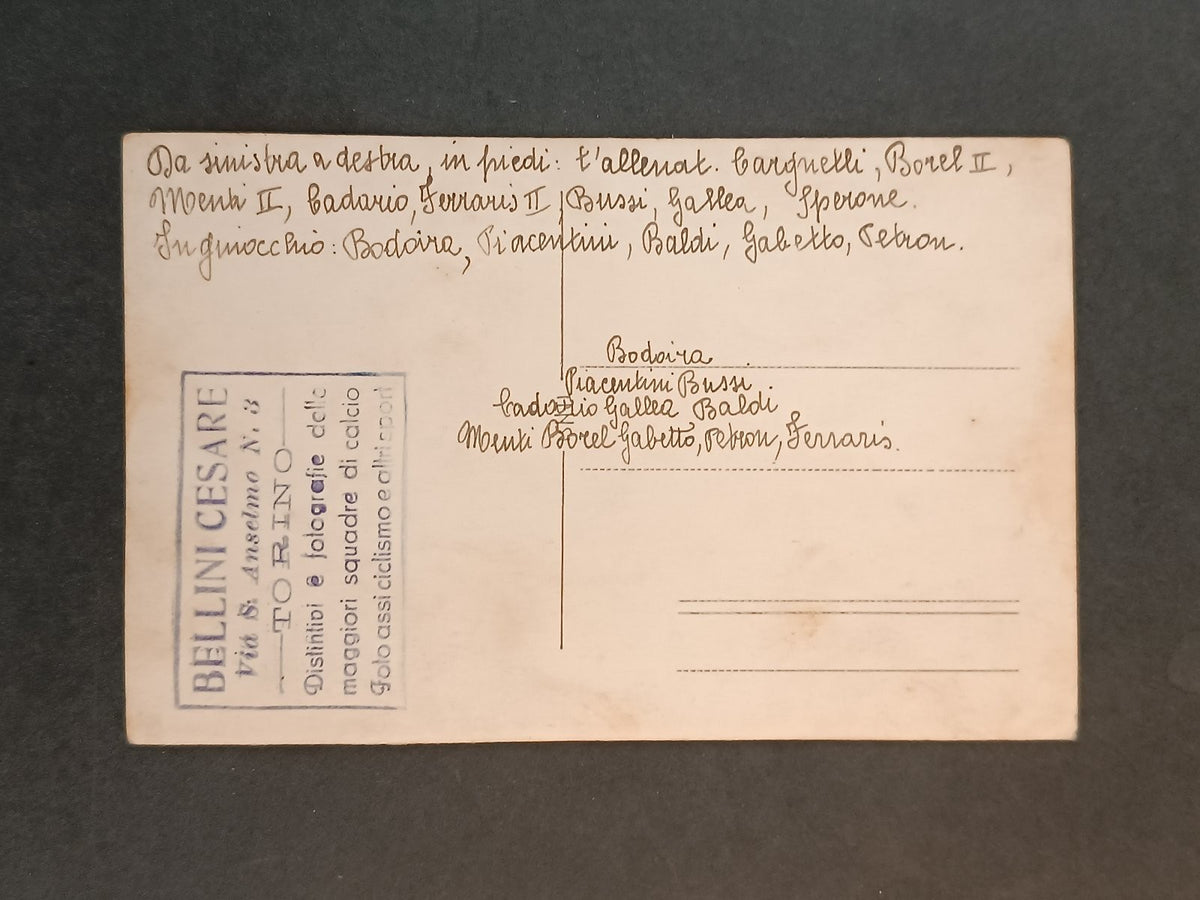 Da sinistra a destra, in piedi: l'allenat. Cargnelli, Borel II,
Menti II, Cadario, Ferraris II, Bussi, Gallea, Sperone.
In ginocchio: Bodoira, Piacentini, Baldi, Gabetto, Petron.
Bodoira
Piacentini Bussi
Cadario Gallea Baldi
Menti Borel Gabetto, Petron, Ferraris.
BELLINI CESARE
Via S. Anselmo N. 3
TORINO
Distintivi e fotografie delle
maggiori squadre di calcio
Foto assi ciclismo e altri sport